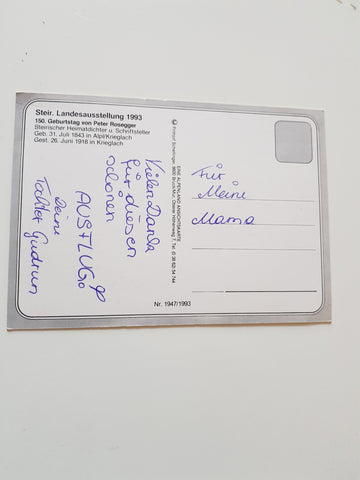 Steir. Landesausstellung 1993
150. Geburtstag von Peter Rosegger
Steirischer Heimatdichter u. Schriftsteller
Geb. 31. Juli 1843 in Alpl/Krieglach
Gest. 26. Juni 1918 in Krieglach
Vielen Dank
für diesen
schönen
AUSFLUG.
Deine
Tochter Gudrun
EINE ALPENLAND ANSICHTSKARTE
Für
Meine
Mama
Nr. 1947/1993